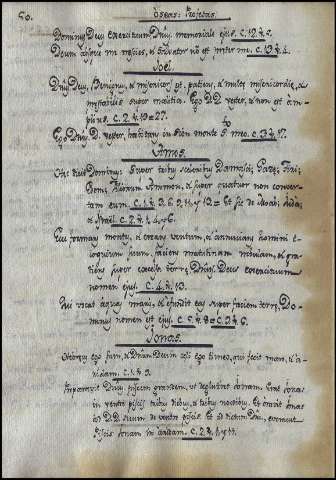 50.
Oseas: Profetas
Dominus Deus exercituum Dnus, memoriale ejus. c. 12. v. 5.
Deum absque me nescies, et Salvator nô est præter me. c. 13. v. 4.
Joel.
Dnus Deus, benignus, et misericors est, patiens, et multæ misericordiæ, et
super malitia. Ego DD. vester, et non est am-
plius. c. 2. v. 13 = 27.
Ego Dnus D. vester, habitans in Sion monte S. meo. c. 3. v. 17.
Amos.
Hæc dicit Dominus: Super tribus sceleribus Damasci; Gazæ; Tyri;
Edom; filiorum Ammon, et super quatuor non conver-
tam eum. c. 1. v. 3, 6, 9, 11, y 13 = et sic de Moab; Juda;
et Israel. c. 2. v. 1, 4, y 6.
formans montes, et creans ventum, et annuncians homini e-
loquium suum, faciens matutinam nebulam, et gra-
diens super excelsa terræ, Dnus Deus exercituum
nomen ejus. c. 4. v. 13.
Qui vocat aquas maris, et effundit eas super faciem terræ, Do-
minus nomen est ejus. c. 5. v. 8 = c. 9. v. 6.
Jonas.
Hebræus ego sum, et Dnum Deum cœli ego timeo, qui fecit mare, et a-
ridam. c. 1. v. 9.
Præparavit Dnus piscem grandem, ut deglutiret Jonam. Erat Jonas
in ventre piscis tribus diebus, et tribus noctibus. Et oravit Jonas
ad D. D. suum de ventre piscis. Et dixit Dnus, evomuit
piscis Jonam in aridam. c. 2. v. 1, y 11.